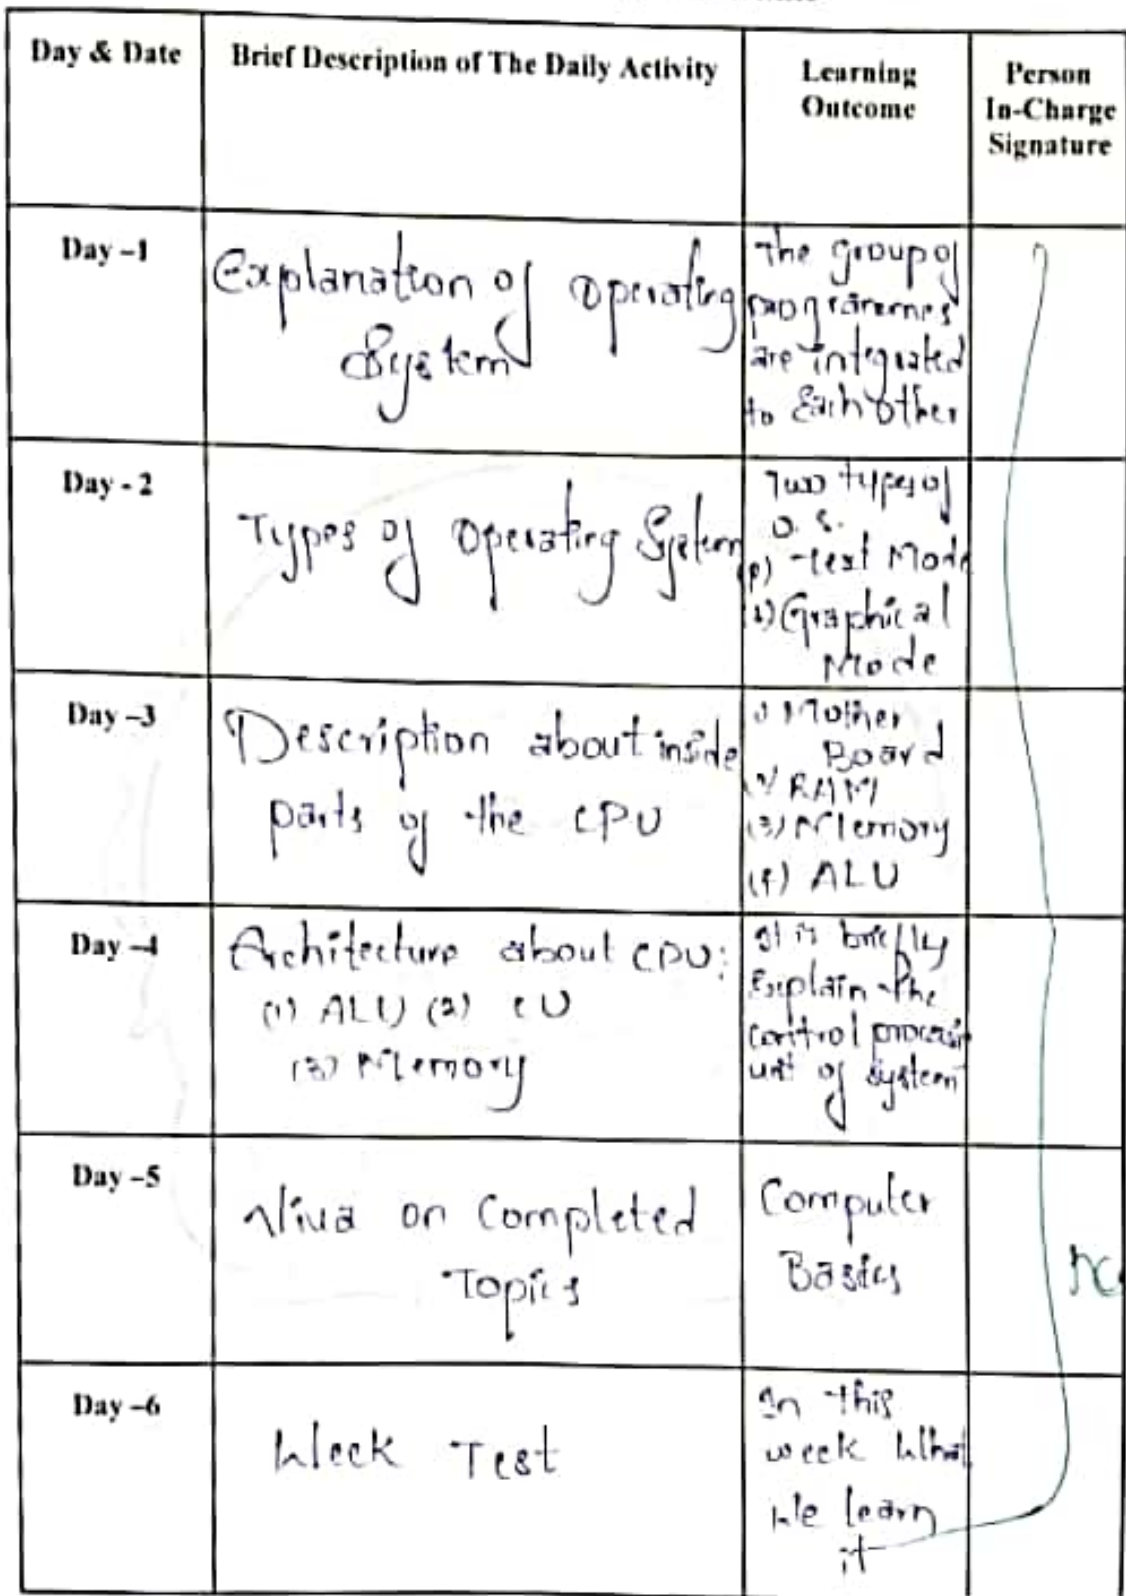 Day & Date
Brief Description of The Daily Activity
Learning
Outcome
Person
In-Charge
Signature
Day –1
Explanation of Operating
System
The group of
programmes
are integrated
to Each other
Day - 2
Types of Operating System
Two types of
O. S.
Text Mode
Graphical
Mode
Day –3
Description about inside
parts of the CPU
Mother
Board
RAM
(3) Memory
(4) ALU
Day –4
Architecture about CPU:
(1) ALU (2) CU
(3) Memory
It is briefly
Explain the
control
unit of system
Day –5
Viva on Completed
Topics
Computer
Basics
Day –6
Week Test
In this
week What
We learn
it